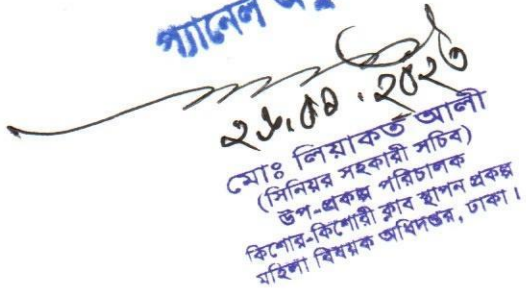 প্যানেল
মোঃ লিয়াকত আলী
(সিনিয়র সহকারী সচিব)
উপ-প্রকল্প পরিচালক
কিশোর-কিশোরী ক্লাব স্থাপন প্রকল্প
মহিলা বিষয়ক অধিদপ্তর, ঢাকা।